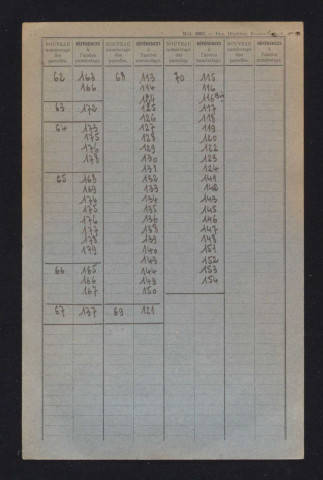 NOUVEAU numérotage des parcelles. RÉFÉRENCES à l'ancien numérotage NOUVEAU numérotage des parcelles. RÉFÉRENCES à l'ancien numérotage NOUVEAU numérotage des parcelles. RÉFÉRENCES à l'ancien numérotage NOUVEAU numérotage des parcelles. RÉFÉRENCES à l'ancien numérotage
62 163 68 113 70 115
166 114 116
63 172 125 117
126 118
64 173 127 119
175 128 120
176 129 122
178 130 123
131 124
65 168 132 141
169 133 142
174 134 143
175 135 145
176 136 146
177 138 147
178 139 148
179 140 151
143 152
66 165 144 153
166 149 154
167 150
67 137 69 121